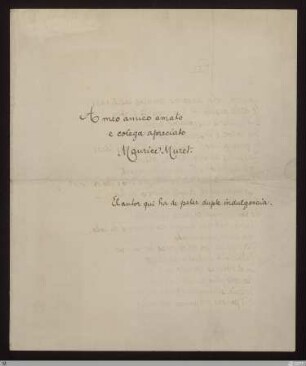 A meo amico amato
e colega apreciato
Maurice Muret.
El autor qui ha de peter duple indulgencia.